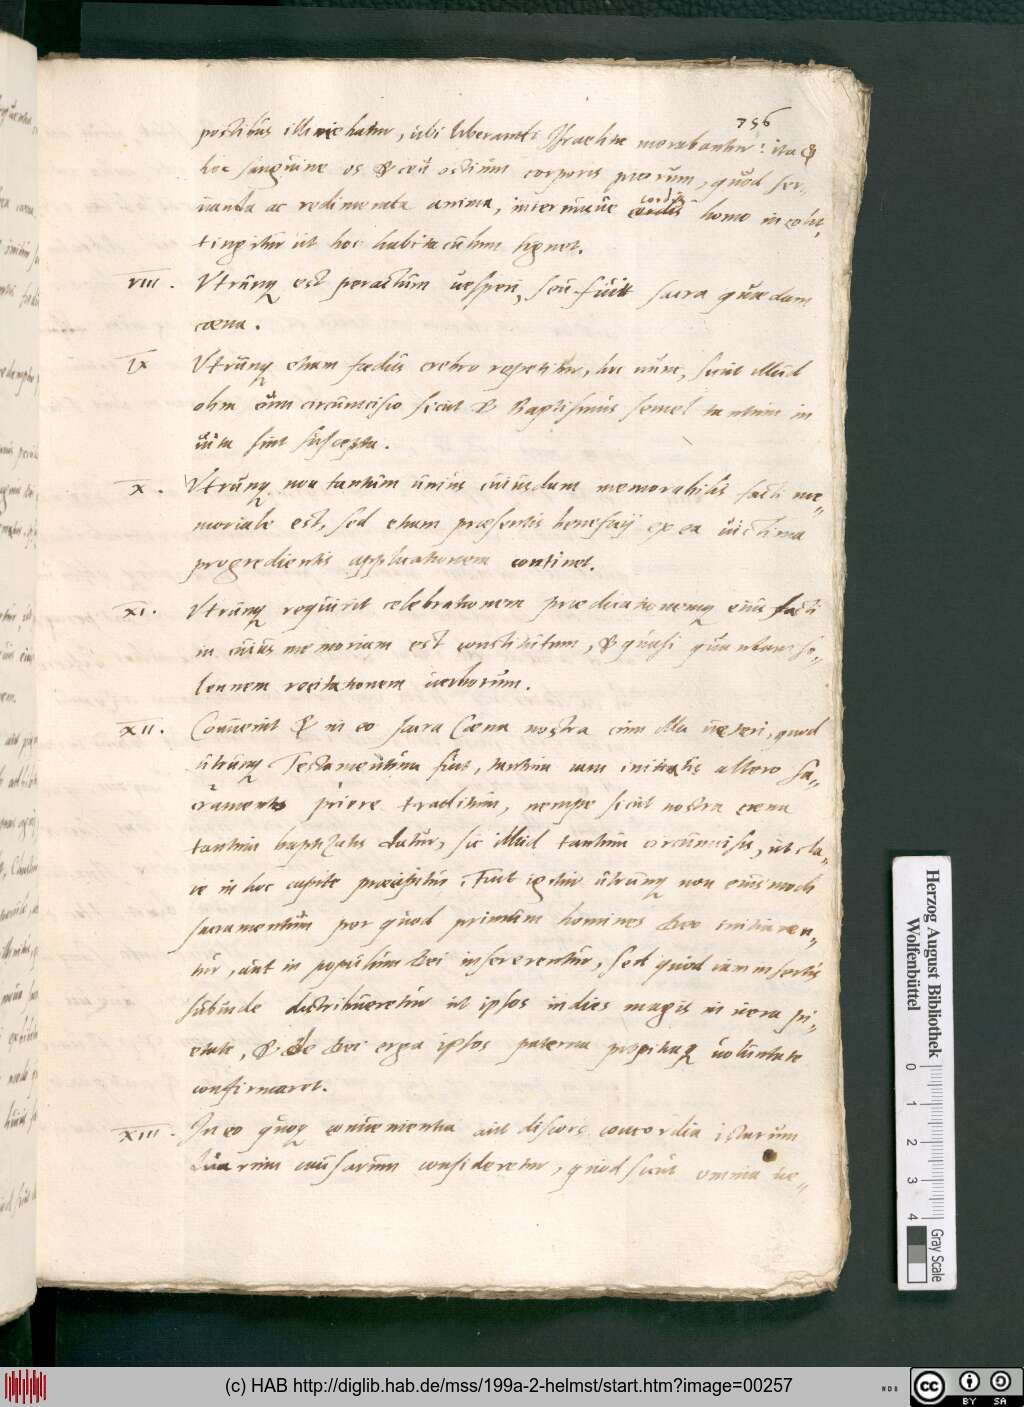 756
postibus illiniebatur, ubi liberandi Israelitæ morabantur: ita &
hoc sanguine os & ceu ostium corporis piorum, quod ser„
uanda ac redimenda anima, interiorue cordis homo incolit,
tingitur ut hoc habitaculum signet.
VIII. Utrunq est peractum uesperi, seu fuit sacra quædam
cœna.
IX Utrunq etiam sæpius crebro repetitur, hic nunc, sicut illud
olim cum circumcisio sicut & Baptismus semel tantum in
uita sint suscepta.
X. Utrunq non tantum unius cuiusdam memorabilis facti me„
moriale est, sed etiam præsentis beneficij ex ea uictima
progredientis applicationem continet.
XI. Utrunq requirit celebrationem prædicationemq eius facti
in cuius memoriam est constitutum, & quasi quandam so„
lennem recitationem uerborum.
XII. Conuenit & in eo sacra Cœna nostra cum illa ueteri, quod
utrunq Testamentum sit, tantum iam initiatis altero sa„
cramento priore traditum, nempe sicut nostra cæna
tantum baptizatis datur, sic illud tantum circumcisis, ut cla„
re in hoc capite præcipitur. Fuit igitur utrunq non eiusmodi
sacramentum per quod primum homines deo initiaren„
tur, aut in populum dei insererentur, sed quod iam insertis
subinde distribueretur ut ipsos indies magis in uera pi„
etate, & de dei erga ipsos paterna propitiaq uoluntate
confirmaret.
XIII. In eo quoq conuenientia aut discors concordia istarum
duarum causarum consideretur, quod sicut omnia ue„
Herzog August Bibliothek
Wolfenbüttel
0 1 2 3 4
Gray Scale
(c) HAB http://diglib.hab.de/mss/199a-2-helmst/start.htm?image=00257
cc BY SA